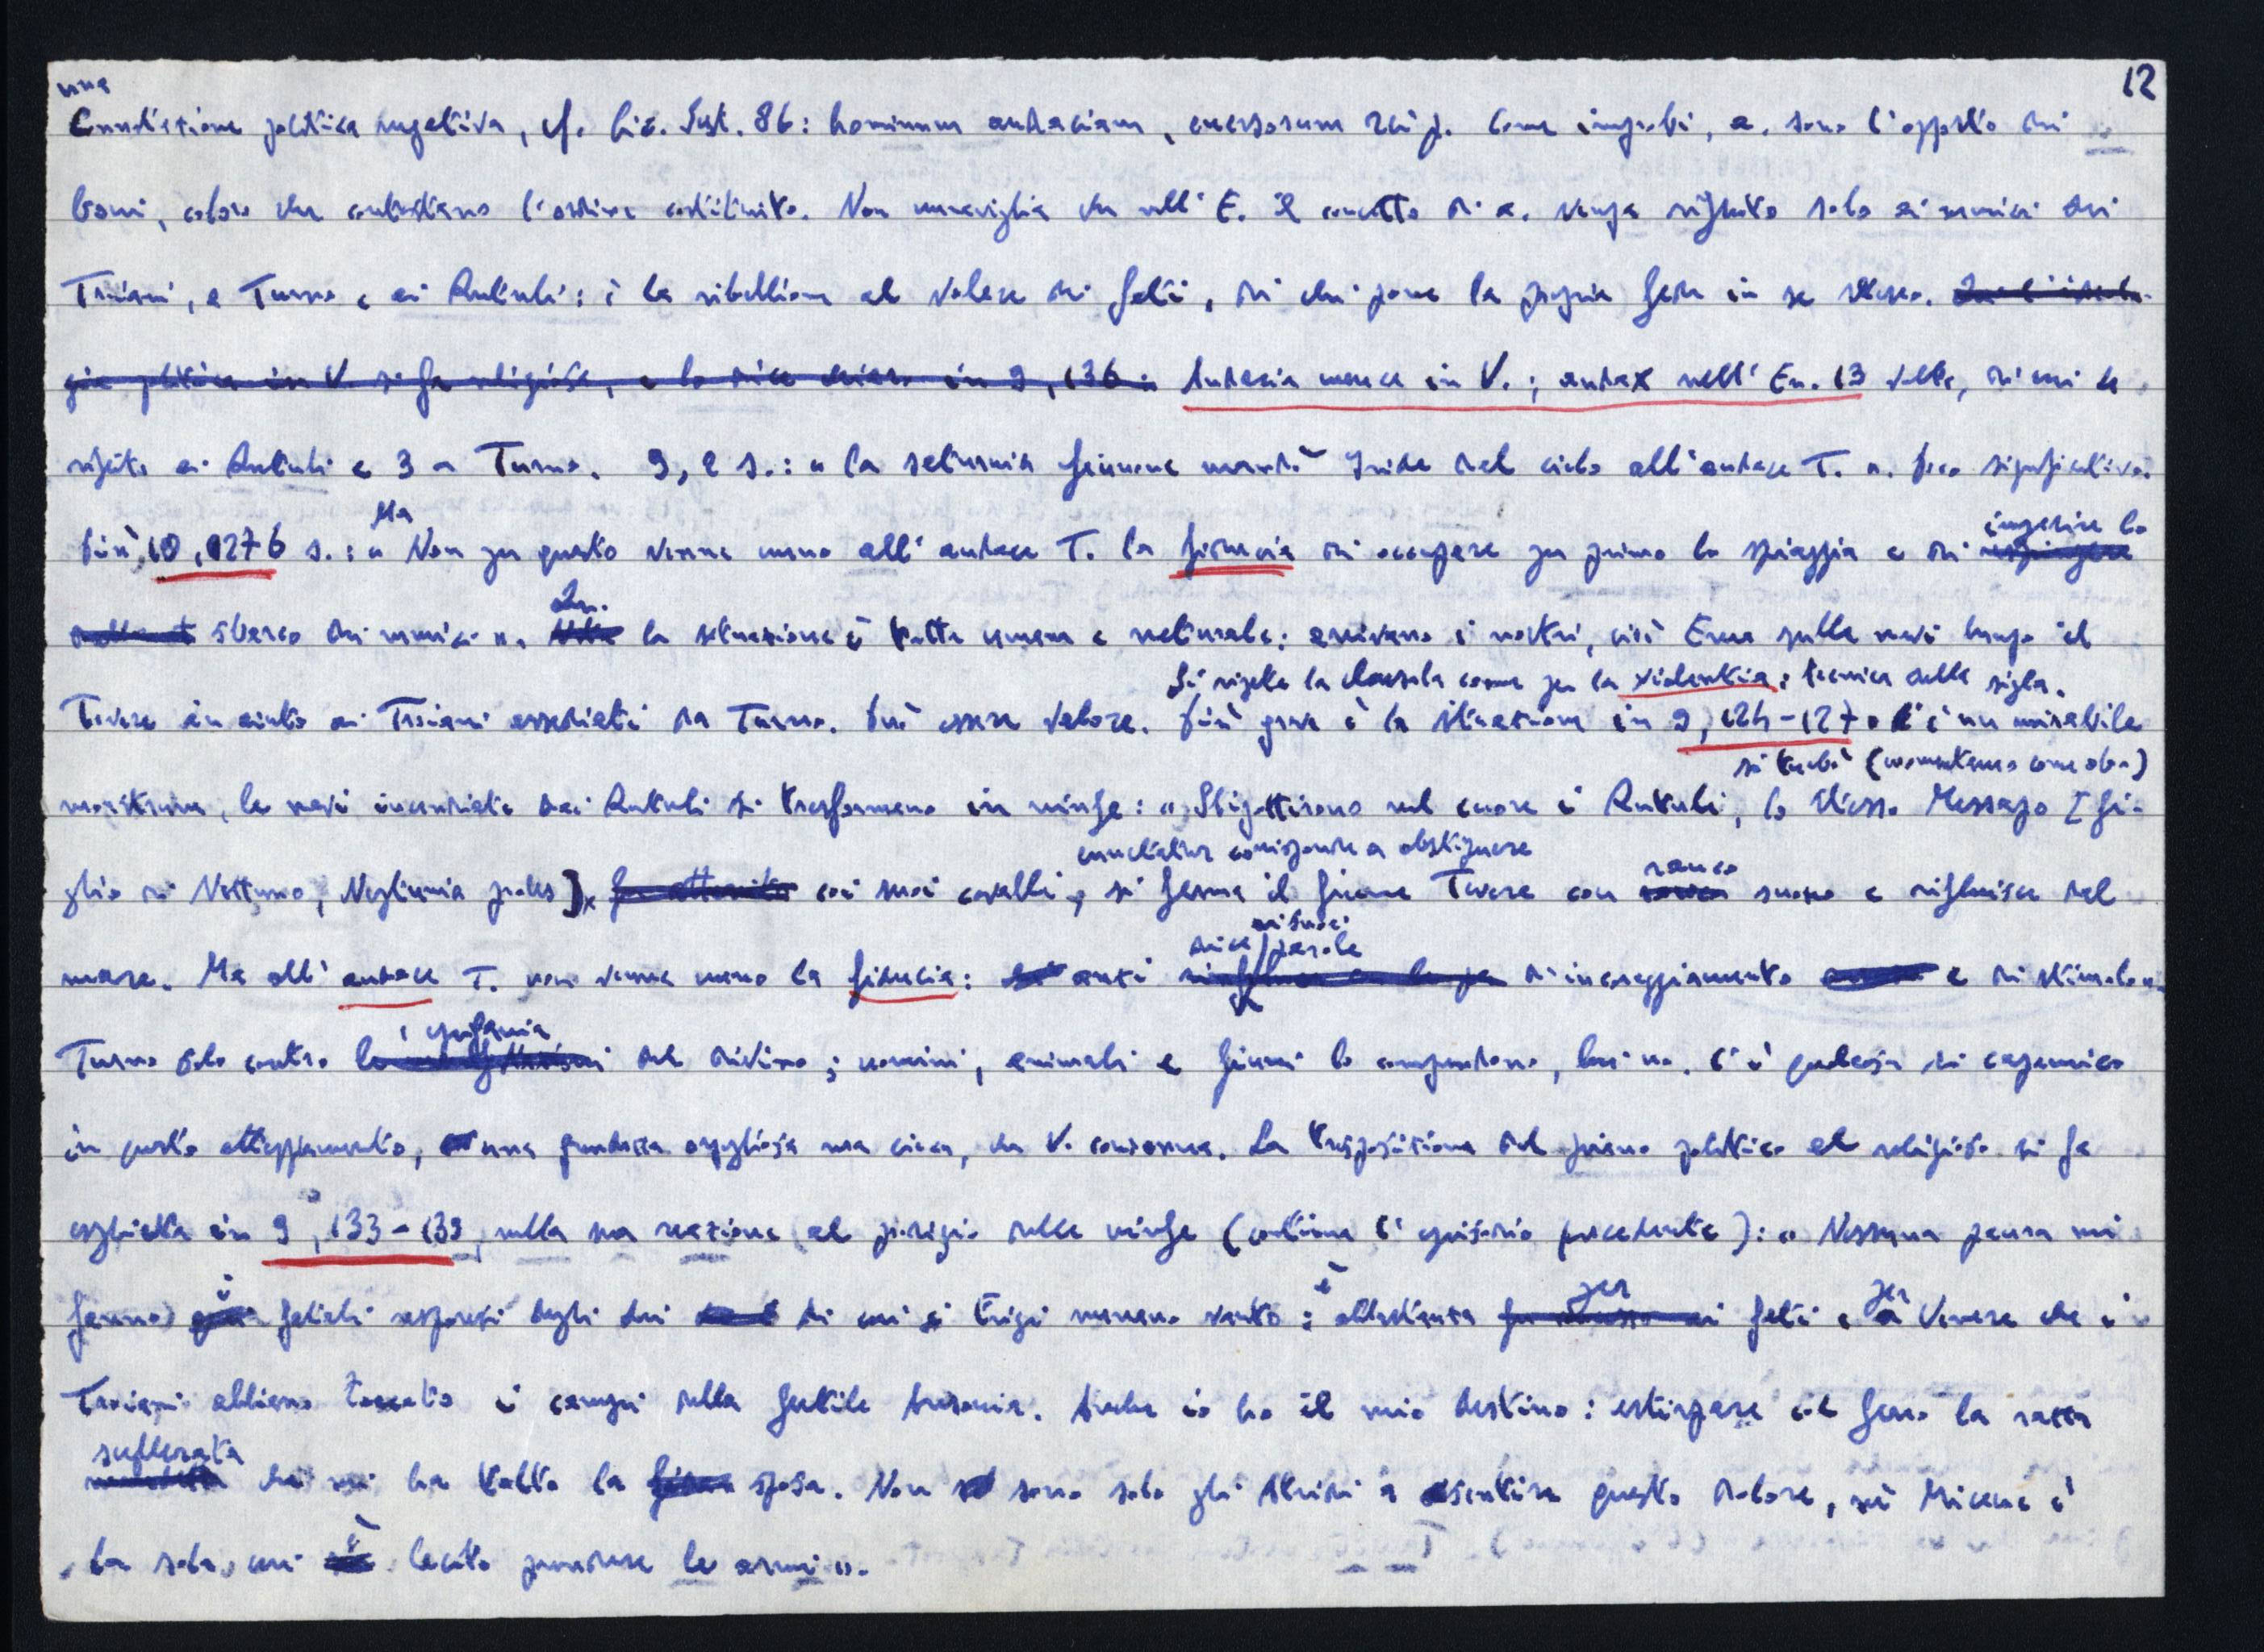 12
una
connotazione politica negativa, cf. Cic. Sest. 86: hominum audaciam, eversorum rei p. Come improbi, a. sono l'opposto dei
boni, coloro che contestano l'ordine costituito. Non meraviglia che nell'E. il concetto di a. venga riferito solo ai nemici dei
Troiani, a Turno e ai Rutuli: è la ribellione al volere dei fati, di chi pone la propria fede in se stesso.
gia politica in V. si fa religiosa, e lo dice chiaro in 9, 136: Audacia manca in V.; audax nell'En. 13 volte, di cui 4
riferito ai Rutuli e 3 a Turno. 9, 2 s.: « la saturnia Giunone mandò Iride dal cielo all'audace T. ». Poco significativo.
Ma
ingerire lo
Più 10, 276 s.: « Non per questo venne meno all'audace T. la fiducia di occupare per primo la spiaggia e di respingere
Qu.
sbarco dei nemici ». la situazione è tutta umana e naturale: arrivano i nostri, cioè Enea sulle navi lungo il
Si ripete la clausola come per la violentia: tecnica della sigla.
Tevere in aiuto ai Troiani assediati da Turno. Può essere valore. Più grave è la situazione in 9, 124-127. C'è un mirabile
si turbò (commentano come abl.)
monstrum, le navi incendiate dai Rutuli si trasformano in ninfe: « Sbigottirono nel cuore i Rutuli, lo stesso Messapo [fi-
cunctatur corrisponde a obstipuere
rauco
glio di Nettuno, Neptunia proles] coi suoi cavalli, si ferma il fiume Tevere con suono e rifluisce dal
dice ai suoi parole
mare. Ma all'audace T. non venne meno la fiducia: anzi di incoraggiamento e di stimolo ».
l'epifania
Turno solo contro del divino; uomini, animali e fiumi lo comprendono, lui no. C'è qualcosa di capaneico
in questo atteggiamento, una grandezza orgogliosa ma cieca, che V. condanna. La trasposizione dal piano politico al religioso si fa
esplicita in 9, 133-139, nella sua reazione al prodigio delle ninfe (continua l'episodio precedente): « Nessuna paura mi
i
è
per
per
fanno fatali responsi degli dei di cui i Frigi menano vanto: abbastanza fati e Venere che i
Troiani abbiano toccato i campi della fertile Ausonia. Anche io ho il mio destino: estirpare col ferro la razza
scellerata
che mi ha tolto la sposa. Non sono solo gli Atridi a sentire questo dolore, né Micene è
è
la sola cui lecito prendere le armi ».